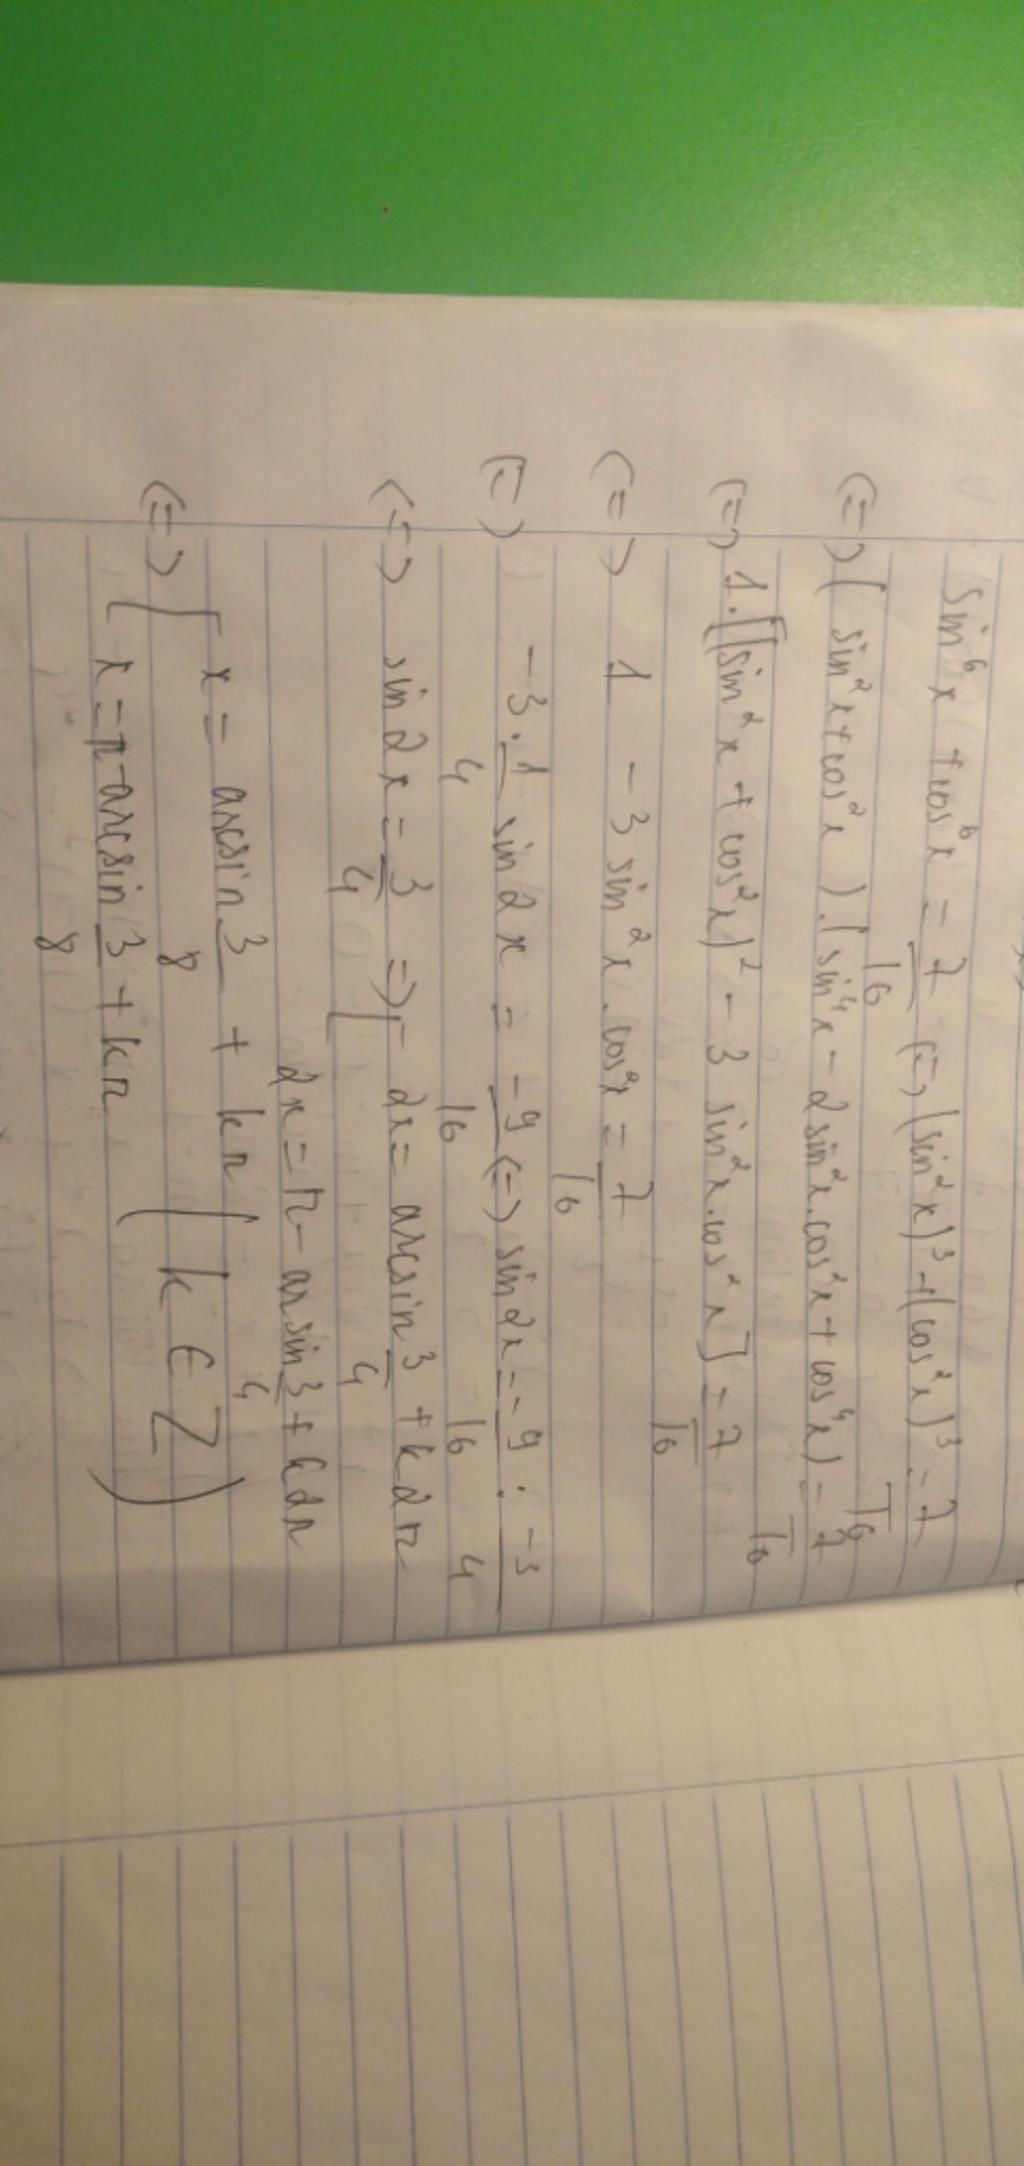 sin⁶x + cos⁶x = 7/16 (=) (sin²x)³ + (cos²x)³ = 7/16
(=) (sin²x + cos²x).(sin⁴x - 2sin²x.cos²x + cos⁴x) = 7/16
(=) 1.[(sin²x + cos²x)² - 3 sin²x.cos²x] = 7/16
(=) 1 - 3 sin²x.cos²x = 7/16
(=) -3.1/4 sin2x = -9/16 (=) sin2x = -9/16 : -3/4
(=) sin2x = 3/4 =) [ 2x = arcsin 3/4 + k2π
2x = π - arsin 3/4 + k2π
(=) [ x = arcsin 3/8 + kπ ( k ∈ Z )
x = π - arcsin 3/8 + kπ